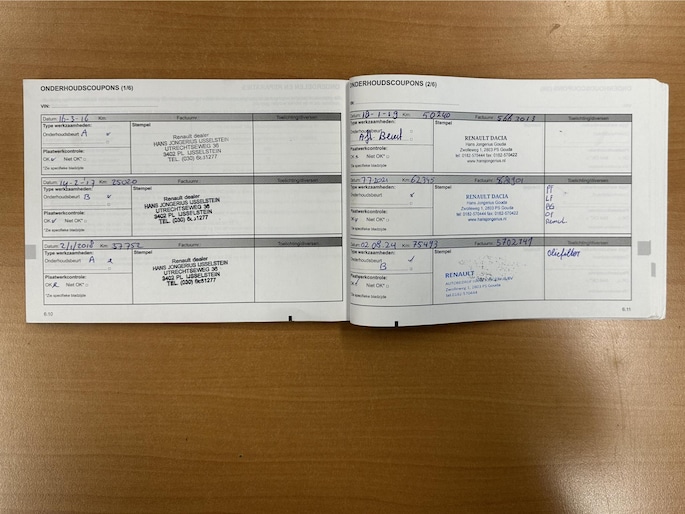 ONDERHOUDSCOUPONS (1/6)
VIN:
Datum: 16-3-16 Km: Factuurnr.: Toelichting/diversen:
Type werkzaamheden: Stempel
Onderhoudsbeurt A
Renault dealer
HANS JONGERIUS IJSSELSTEIN
UTRECHTSEWEG 36
3402 PL IJSSELSTEIN
TEL. (030) 6831277
Plaatwerkcontrole:
OK Niet OK*
*Zie specifieke bladzijde
Datum: 14-2-'17 Km: 25020 Factuurnr.: Toelichting/diversen:
Type werkzaamheden: Stempel
Onderhoudsbeurt B
Renault dealer
HANS JONGERIUS IJSSELSTEIN
UTRECHTSEWEG 36
3402 PL IJSSELSTEIN
TEL. (030) 6831277
Plaatwerkcontrole:
OK Niet OK*
*Zie specifieke bladzijde
Datum: 2/1/2018 Km: 37752 Factuurnr.: Toelichting/diversen:
Type werkzaamheden: Stempel
Onderhoudsbeurt A
Renault dealer
HANS JONGERIUS IJSSELSTEIN
UTRECHTSEWEG 36
3402 PL IJSSELSTEIN
TEL. (030) 6831277
Plaatwerkcontrole:
OK Niet OK*
*Zie specifieke bladzijde
6.10
ONDERHOUDSCOUPONS (2/6)
Datum: 18-1-19 Km: 50240 Factuurnr.: Toelichting/diversen:
Type werkzaamheden: Stempel
Onderhoudsbeurt
Beurt
RENAULT DACIA
Hans Jongerius Gouda
Zwolleweg 1, 2803 PS Gouda
tel. 0182-570444 fax. 0182-570422
www.hansjongerius.nl
Plaatwerkcontrole:
Niet OK*
*Zie specifieke bladzijde
Datum: 7 7 2021 Km: 62745 Factuurnr.: Toelichting/diversen:
Type werkzaamheden: Stempel
Onderhoudsbeurt
RENAULT DACIA
Hans Jongerius Gouda
Zwolleweg 1, 2803 PS Gouda
www.hansjongerius.nl
Plaatwerkcontrole:
Niet OK*
*Zie specifieke bladzijde
Datum: 02 08 24 Km: 75493 Factuurnr.: 5702147 Toelichting/diversen:
Type werkzaamheden: Stempel
Onderhoudsbeurt
B
RENAULT
Zwolleweg 1, 2803 PS Gouda
tel. 0182-570444
Oliefilter
Plaatwerkcontrole:
Niet OK*
*Zie specifieke bladzijde
6.11